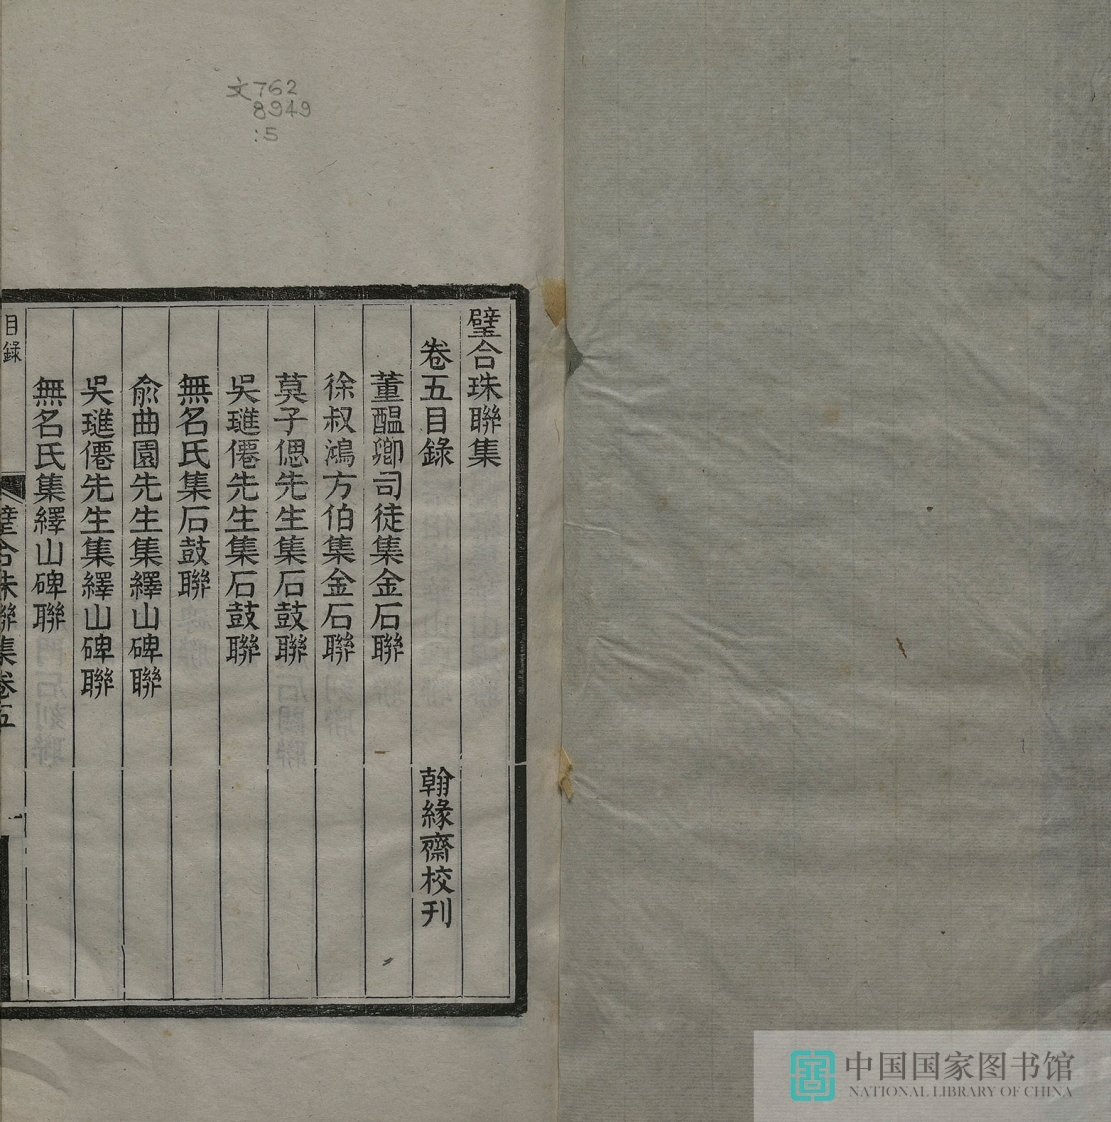 文762
8949
:5
璧合珠聯集
卷五目錄 翰緣齋校刊
董醞卿司徒集金石聯
徐叔鴻方伯集金石聯
莫子偲先生集石鼓聯
吳璡僊先生集石鼓聯
無名氏集石鼓聯
俞曲園先生集繹山碑聯
吳璡僊先生集繹山碑聯
無名氏集繹山碑聯
目錄
璧合珠聯集卷五
一
中国国家图书馆
NATIONAL LIBRARY OF CHINA